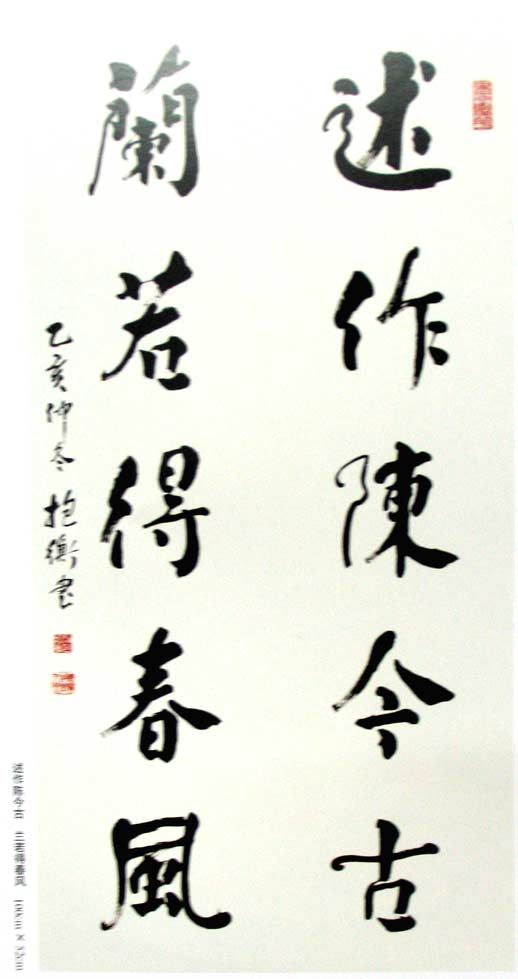 述作陳今古
蘭若得春風
乙亥仲冬 抱衡書
述作陈今古 兰若得春风